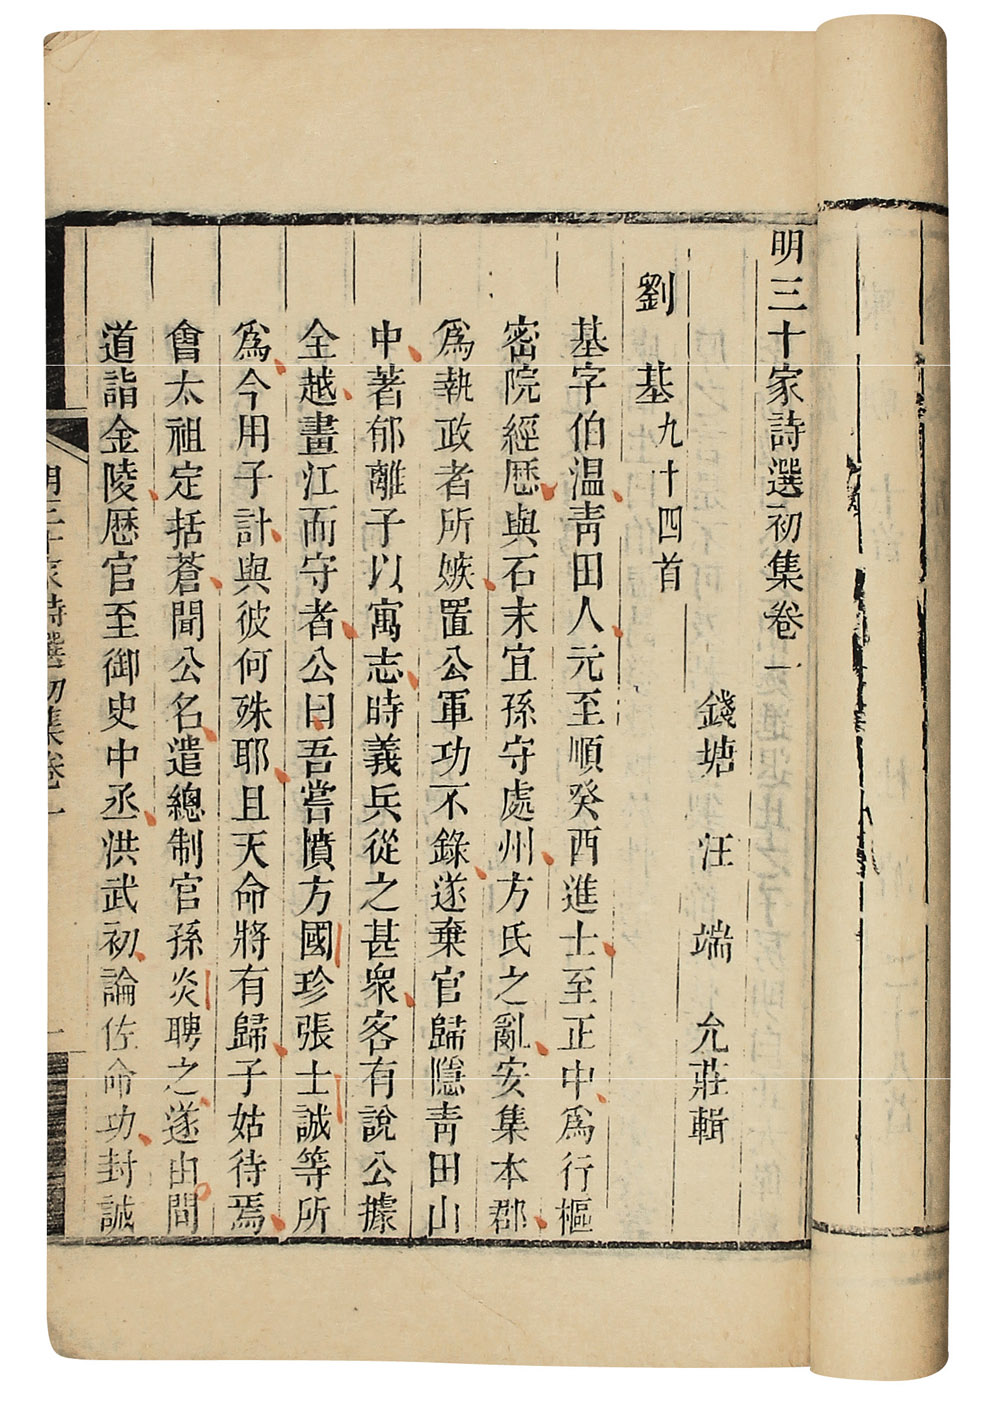 明三十家詩選初集卷一
錢塘 汪 端 允莊輯
劉 基九十四首
基字伯温靑田人元至順癸酉進士至正中爲行樞
密院經歷與石末宜孫守處州方氏之亂安集本郡
爲執政者所嫉置公軍功不錄遂棄官歸隱靑田山
中著郁離子以寓志時義兵從之甚衆客有說公據
全越畫江而守者公曰吾嘗憤方國珍張士誠等所
爲今用子計與彼何殊耶且天命將有歸子姑待焉
會太祖定括蒼聞公名遣總制官孫炎聘之遂由間
道詣金陵歷官至御史中丞洪武初論佐命功封誠
明三十家詩選初集卷一
一